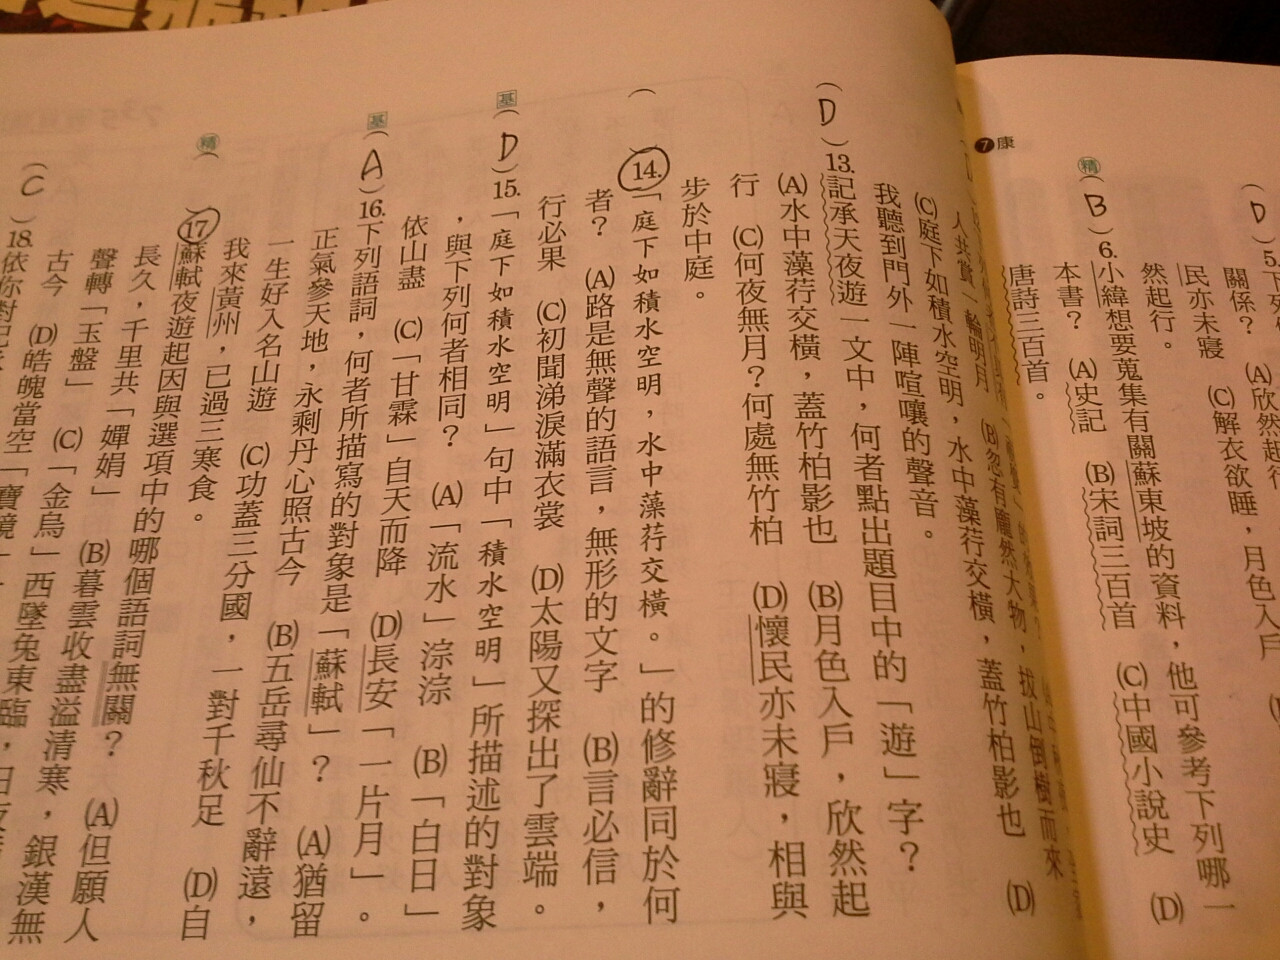 (D)5.
關係？ (A)欣然起行
民亦未寢 (C)解衣欲睡，月色入戶
然起行。
精(B)6.小緯想要蒐集有關蘇東坡的資料，他可參考下列哪一
本書？ (A)史記 (B)宋詞三百首 (C)中國小說史 (D)
唐詩三百首。
7康
人共賞一輪明月 (B)忽有龐然大物，拔山倒樹而來
(C)庭下如積水空明，水中藻荇交橫，蓋竹柏影也 (D)
我聽到門外一陣喧嚷的聲音。
(D)13.記承天夜遊一文中，何者點出題目中的「遊」字？
(A)水中藻荇交橫，蓋竹柏影也 (B)月色入戶，欣然起
行 (C)何夜無月？何處無竹柏 (D)懷民亦未寢，相與
步於中庭。
( )14.「庭下如積水空明，水中藻荇交橫。」的修辭同於何
者？ (A)路是無聲的語言，無形的文字 (B)言必信，
行必果 (C)初聞涕淚滿衣裳 (D)太陽又探出了雲端。
基(D)15.「庭下如積水空明」句中「積水空明」所描述的對象
，與下列何者相同？ (A)「流水」淙淙 (B)「白日」
依山盡 (C)「甘霖」自天而降 (D)長安「一片月」。
基(A)16.下列語詞，何者所描寫的對象是「蘇軾」？ (A)猶留
正氣參天地，永剩丹心照古今 (B)五岳尋仙不辭遠，
一生好入名山遊 (C)功蓋三分國，一對千秋足 (D)自
我來黃州，已過三寒食。
精( )17.蘇軾夜遊起因與選項中的哪個語詞無關？ (A)但願人
長久，千里共「嬋娟」 (B)暮雲收盡溢清寒，銀漢無
聲轉「玉盤」 (C)「金烏」西墜兔東臨，
古今 (D)皓魄當空「寶鏡」
(C)18.